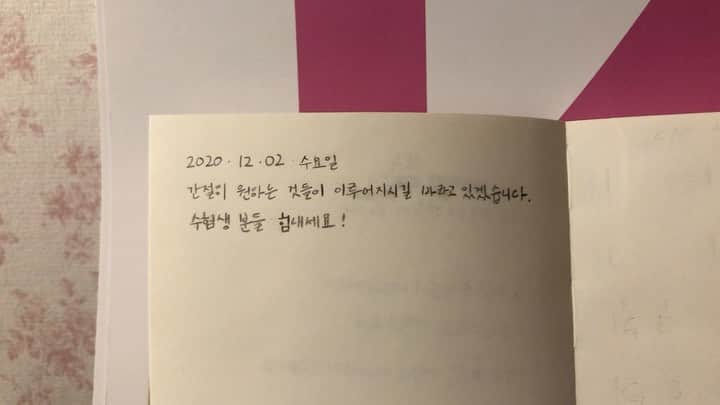 2020. 12. 02 수요일
간절히 원하는 것들이 이루어지시길 바라고 있겠습니다.
수험생 분들 힘내세요!